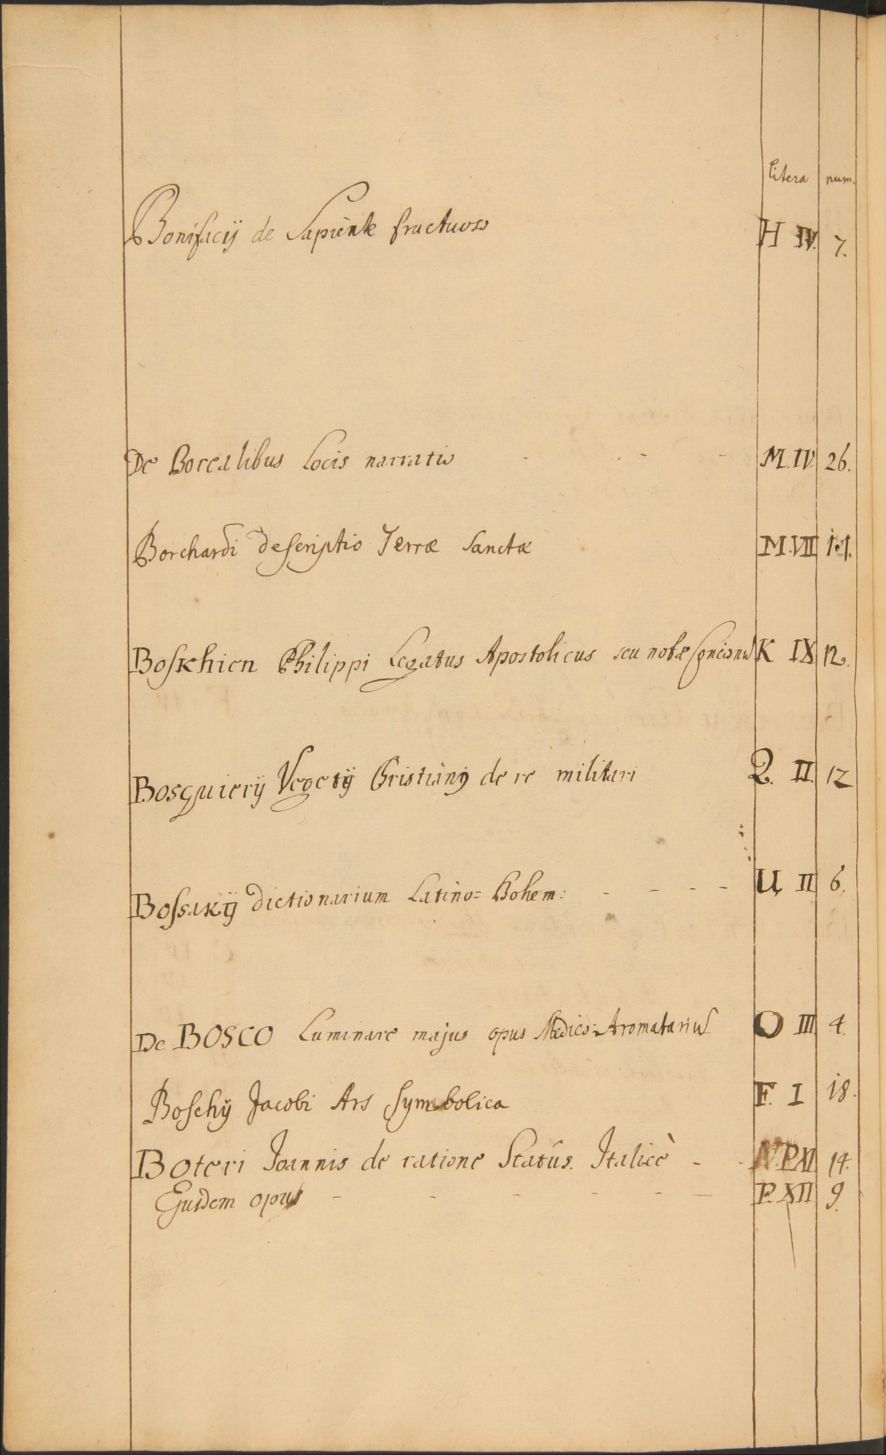 litera num.
Bonifacij de Sapiente fructuoso H IV. 7.
De Borealibus Locis narratio - - - - M. IV. 26.
Borchardi descriptio Terræ Sanctæ M. VII
Boskhien Philippi Legatus Apostolicus seu notæ Concionis K IX 12.
Bosquierij Vegetij Christiany de re militari Q. II. 12
Bossakij dictionarium Latino= Bohem: - - - - U II 6.
De BOSCO Luminare majus opus Medico=Aromatarius O III 4.
Boschij Jacobi Ars Symbolica F. I 18.
Boteri Joannis de ratione Statûs. Italicè - - P.XI 14.
Ejusdem opus - - - - - - P. XII 9.